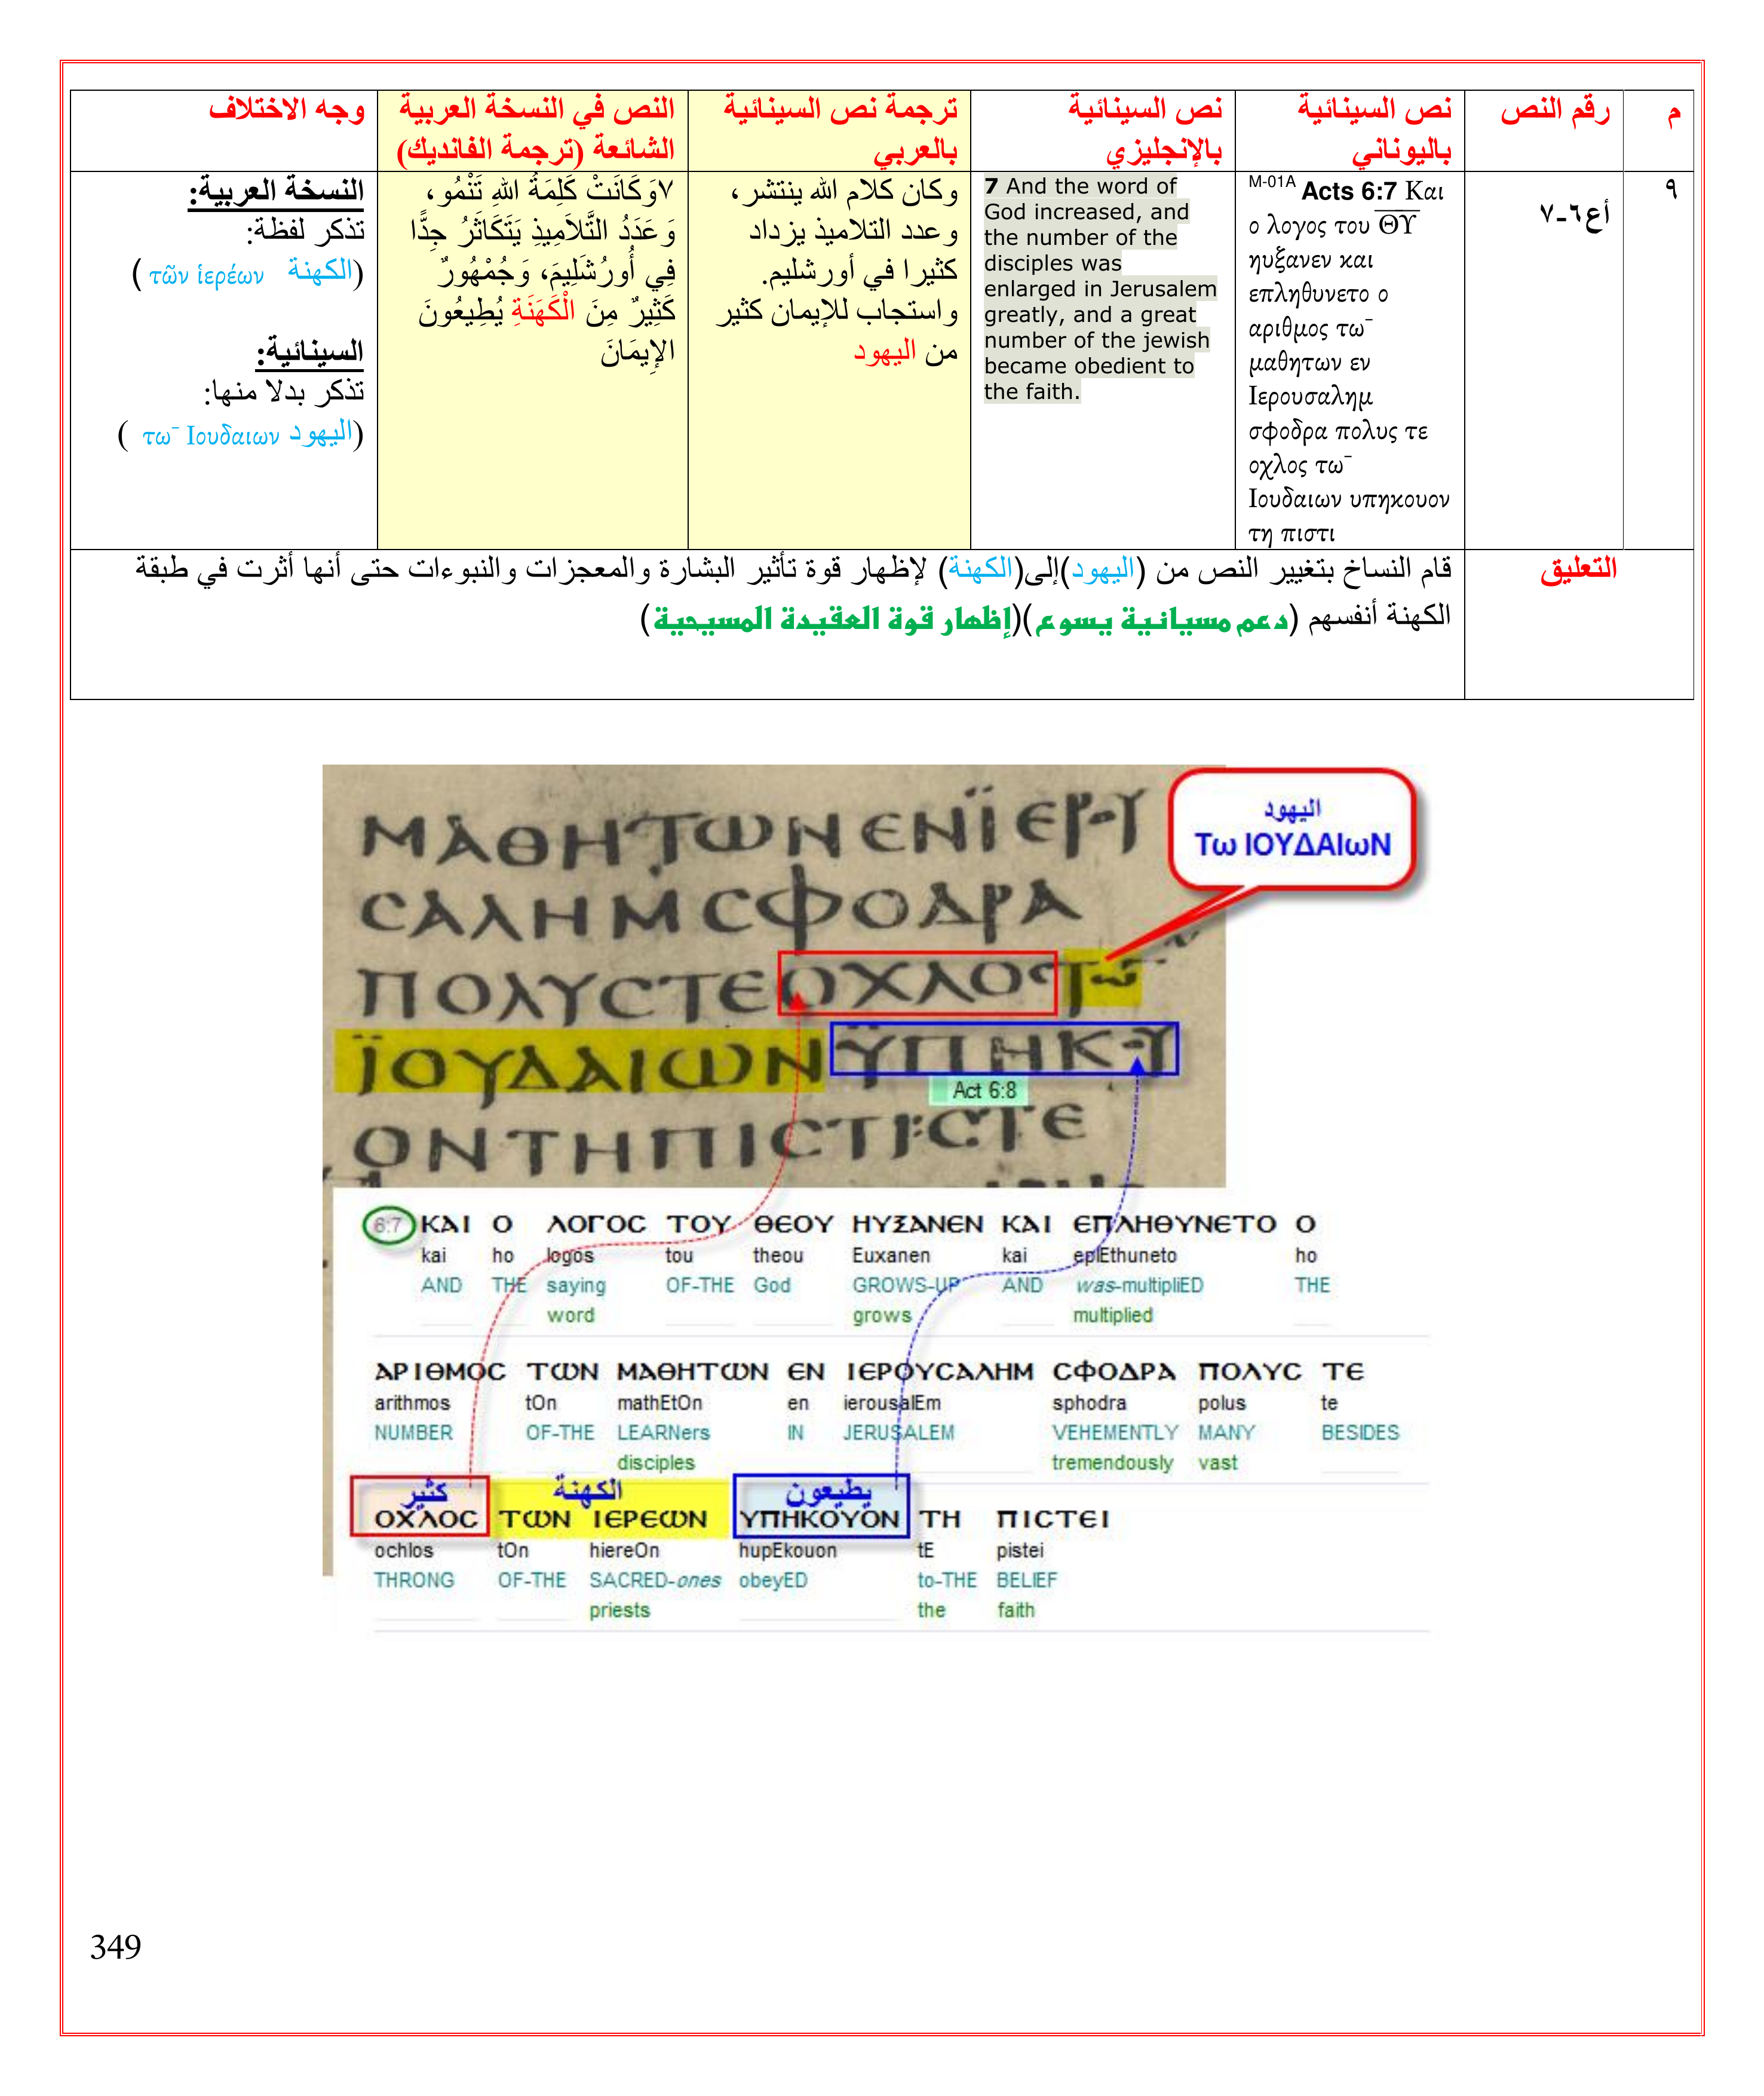 م
رقم النص
نص السينائية
باليوناني
نص السينائية
بالإنجليزي
ترجمة نص السينائية
بالعربي
النص في النسخة العربية
الشائعة (ترجمة الفانديك)
وجه الاختلاف
٩
أع٦-٧
M-01A Acts 6:7 Και
ο λογος του ΘΥ
ηυξανεν και
επληθυνετο ο
αριθμος τω¯
μαθητων εν
Ιερουσαλημ
σφοδρα πολυς τε
οχλος τω¯
Ιουδαιων υπηκουον
τη πιστι
7 And the word of
God increased, and
the number of the
disciples was
enlarged in Jerusalem
greatly, and a great
number of the jewish
became obedient to
the faith.
وكان كلام الله ينتشر،
وعدد التلاميذ يزداد
كثيرا في أورشليم.
واستجاب للإيمان كثير
من اليهود
٧وَكَانَتْ كَلِمَةُ اللهِ تَنْمُو،
وَعَدَدُ التَّلاَمِيذِ يَتَكَاثَرُ جِدًّا
فِي أُورُشَلِيمَ، وَجُمْهُورٌ
كَثِيرٌ مِنَ الْكَهَنَةِ يُطِيعُونَ
الإِيمَانَ
النسخة العربية:
تذكر لفظة:
(الكهنة τῶν ἱερέων )
السينائية:
تذكر بدلا منها:
(اليهود τω¯ Ιουδαιων )
التعليق
قام النساخ بتغيير النص من (اليهود)إلى(الكهنة) لإظهار قوة تأثير البشارة والمعجزات والنبوءات حتى أنها أثرت في طبقة
الكهنة أنفسهم (دعم مسيانية يسوع)(إظهار قوة العقيدة المسيحية)
اليهود
Τω ΙΟΥΔΑΙωΝ
ΜΑΘΗΤΩΝΕΝΪΕΡΥ
ϹΑΛΗΜϹΦΟΔΡΑ
ΠΟΛΥϹΤΕΟΧΛΟϹΤΩ¯
ΪΟΥΔΑΙΩΝΫΠΗΚΥ
Act 6:8
ΟΝΤΗΠΙϹΤΙ:ϹΤΕ
6:7 ΚΑΙ Ο ΛΟΓΟϹ ΤΟΥ ΘΕΟΥ ΗΥΞΑΝΕΝ ΚΑΙ ΕΠΛΗΘΥΝΕΤΟ Ο
kai ho logos tou theou Euxanen kai eplEthuneto ho
AND THE saying OF-THE God GROWS-UP AND was-multipliED THE
word grows multiplied
ΑΡΙΘΜΟϹ ΤΩΝ ΜΑΘΗΤΩΝ ΕΝ ΙΕΡΟΥϹΑΛΗΜ ϹΦΟΔΡΑ ΠΟΛΥϹ ΤΕ
arithmos tOn mathEtOn en ierousalEm sphodra polus te
NUMBER OF-THE LEARNers IN JERUSALEM VEHEMENTLY MANY BESIDES
disciples tremendously vast
كثير الكهنة يطيعون
ΟΧΛΟϹ ΤΩΝ ΙΕΡΕΩΝ ΥΠΗΚΟΥΟΝ ΤΗ ΠΙϹΤΕΙ
ochlos tOn hiereOn hupEkouon tE pistei
THRONG OF-THE SACRED-ones obeyED to-THE BELIEF
priests the faith
349